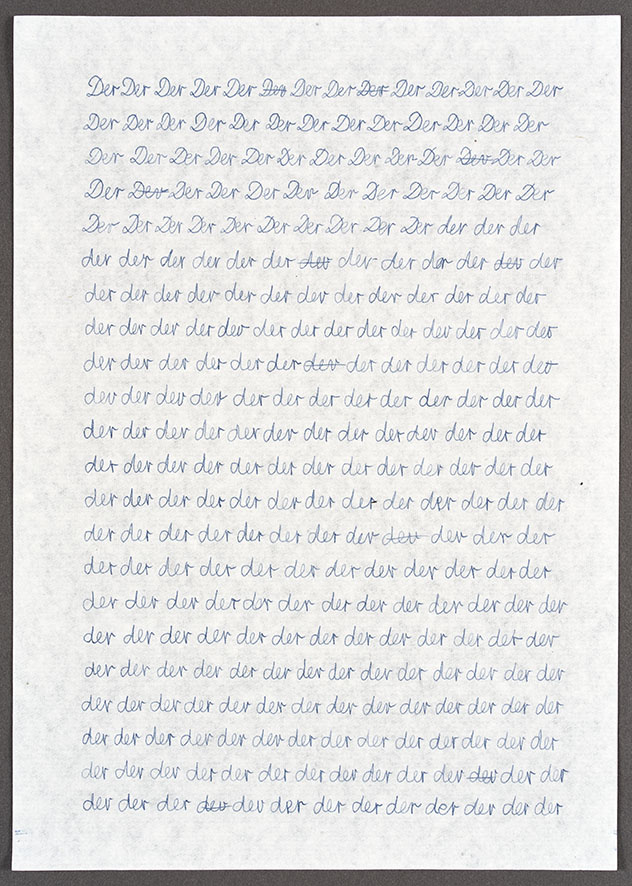 Der Der Der Der Der Der Der Der Der Der Der Der Der Der
Der Der Der Der Der Der Der Der Der Der Der Der Der
Der Der Der Der Der Der Der Der Der Der Der Der Der
Der Der Der Der Der Der Der Der Der Der Der Der
Der Der Der Der Der Der Der Der Der Der der der der
der der der der der der der der der der der der der
der der der der der der der der der der der der der
der der der der der der der der der der der der der der
der der der der der der der der der der der der der
der der der der der der der der der der der der der
der der der der der der der der der der der der der
der der der der der der der der der der der der der
der der der der der der der der der der der der der
der der der der der der der der der der der der
der der der der der der der der der der der der
der der der der der der der der der der der der der
der der der der der der der der der der der der der
der der der der der der der der der der der der der der
der der der der der der der der der der der der der der
der der der der der der der der der der der der der der
der der der der der der der der der der der der der der
der der der der der der der der der der der der der